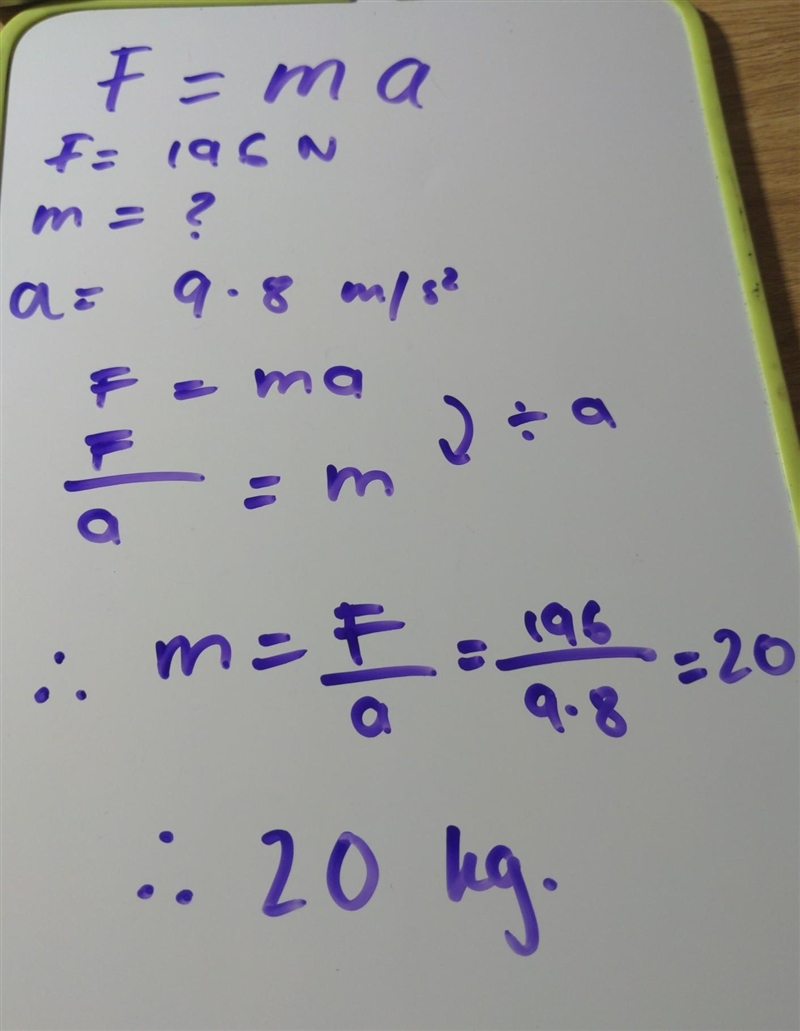 F = ma
F = 196 N
m = ?
a = 9.8 m/s²
F = ma
÷ a
F/a = m
∴ m = F/a = 196/9.8 = 20
∴ 20 kg.